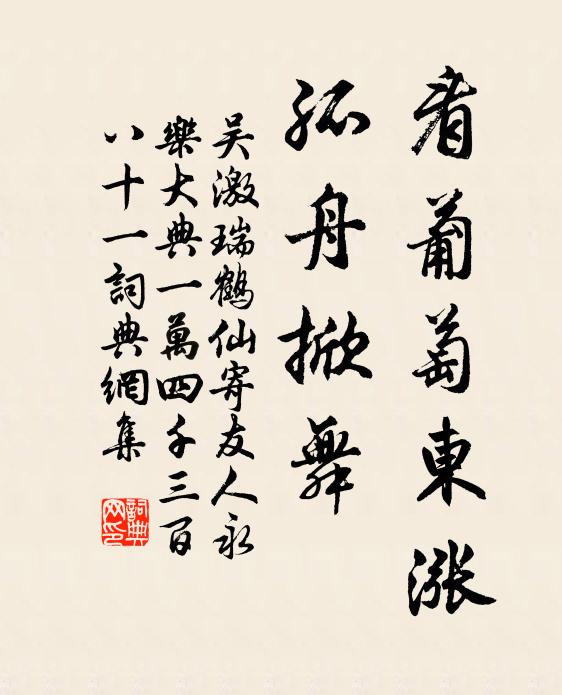 看葡萄東漲
孤舟掀舞
吴激瑞鶴仙寄友人永
樂大典一萬四千三百
八十一詞典網集
詞典网印